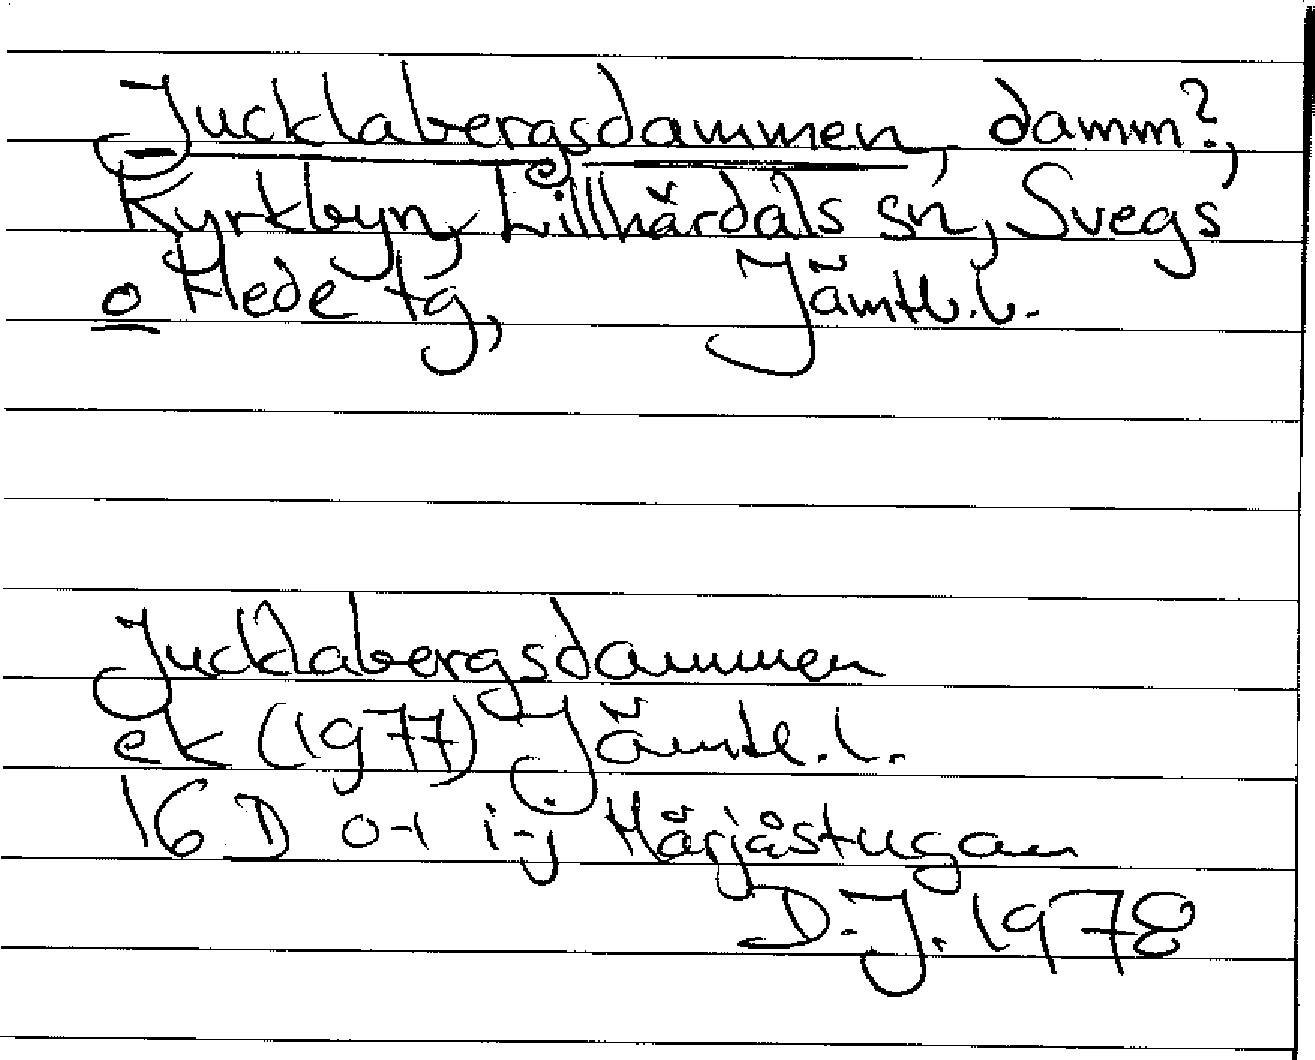 Jucklabergsdammen, damm?,
Kyrkbyn, Lillhärdals sn, Svegs
o Hede tg, Jämtl. l.
Jucklabergsdammen
ek (1977) Jämtl. l.
16 D 0-1 i-j Härjåstugan
D.J. 1978